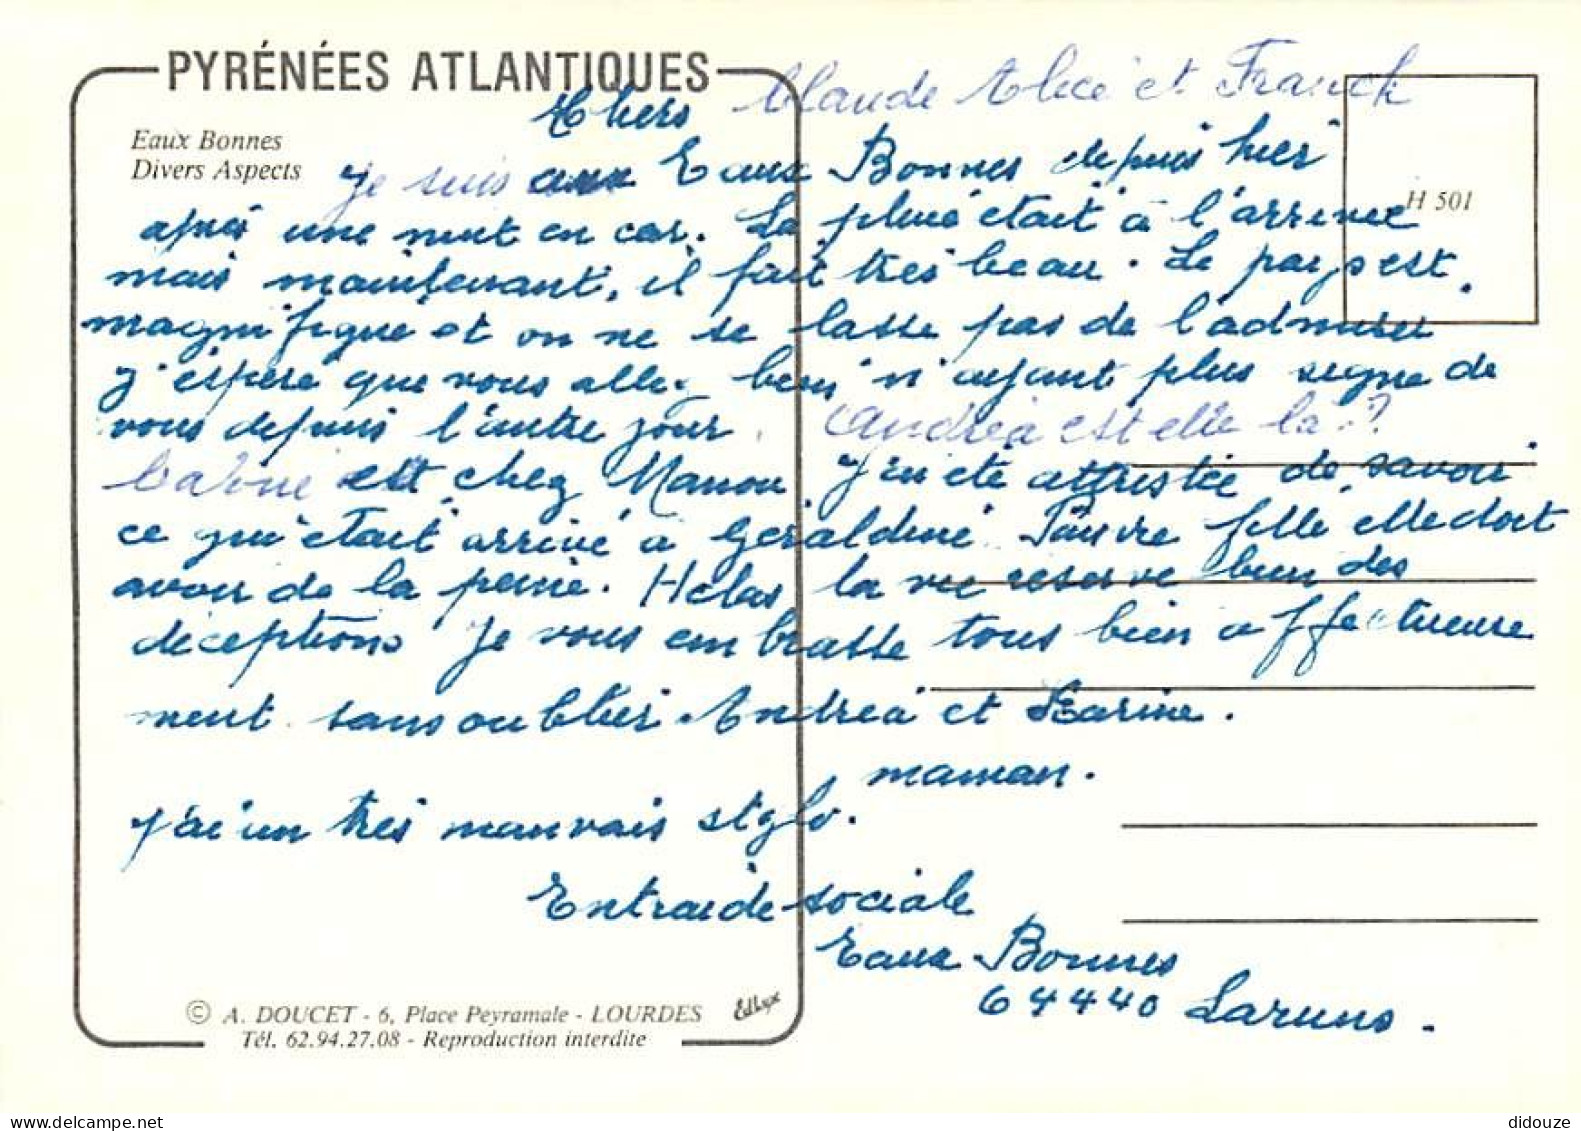 PYRÉNÉES ATLANTIQUES
Eaux Bonnes
Divers Aspects
H 501
Chers Claude Alice et Franck
je suis aux Eaux Bonnes depuis hier
après une nuit en car. La pluie était à l'arrivée
mais maintenant, il fait très beau. Le pays est
magnifique et on ne se lasse pas de l'admirer
j'espère que vous allez bien n'ayant plus signe de
vous depuis l'autre jour. Andréa est elle la ?
Carine est chez Manou J'ai été attristée de savoir
ce qui était arrivé à Géraldine. Pauvre fille elle doit
avoir de la peine. Hélas la vie réserve bien des
déceptions Je vous embrasse tous bien affectueuse
ment sans oublier Andréa et Karine.
maman.
J'ai un très mauvais stylo.
Entraide sociale
Eaux Bonnes
64440 Laruns.
© A. DOUCET - 6, Place Peyramale - LOURDES
Tél. 62.94.27.08 - Reproduction interdite
didouze